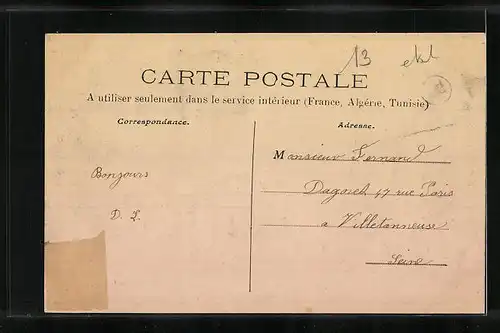 13 ekl
CARTE POSTALE
A utiliser seulement dans le service intérieur (France, Algérie, Tunisie)
Correspondance.
Adresse.
Bonjours
D. L.
Monsieur Fernand
47 rue Paris
a Villetanneuse
Seine